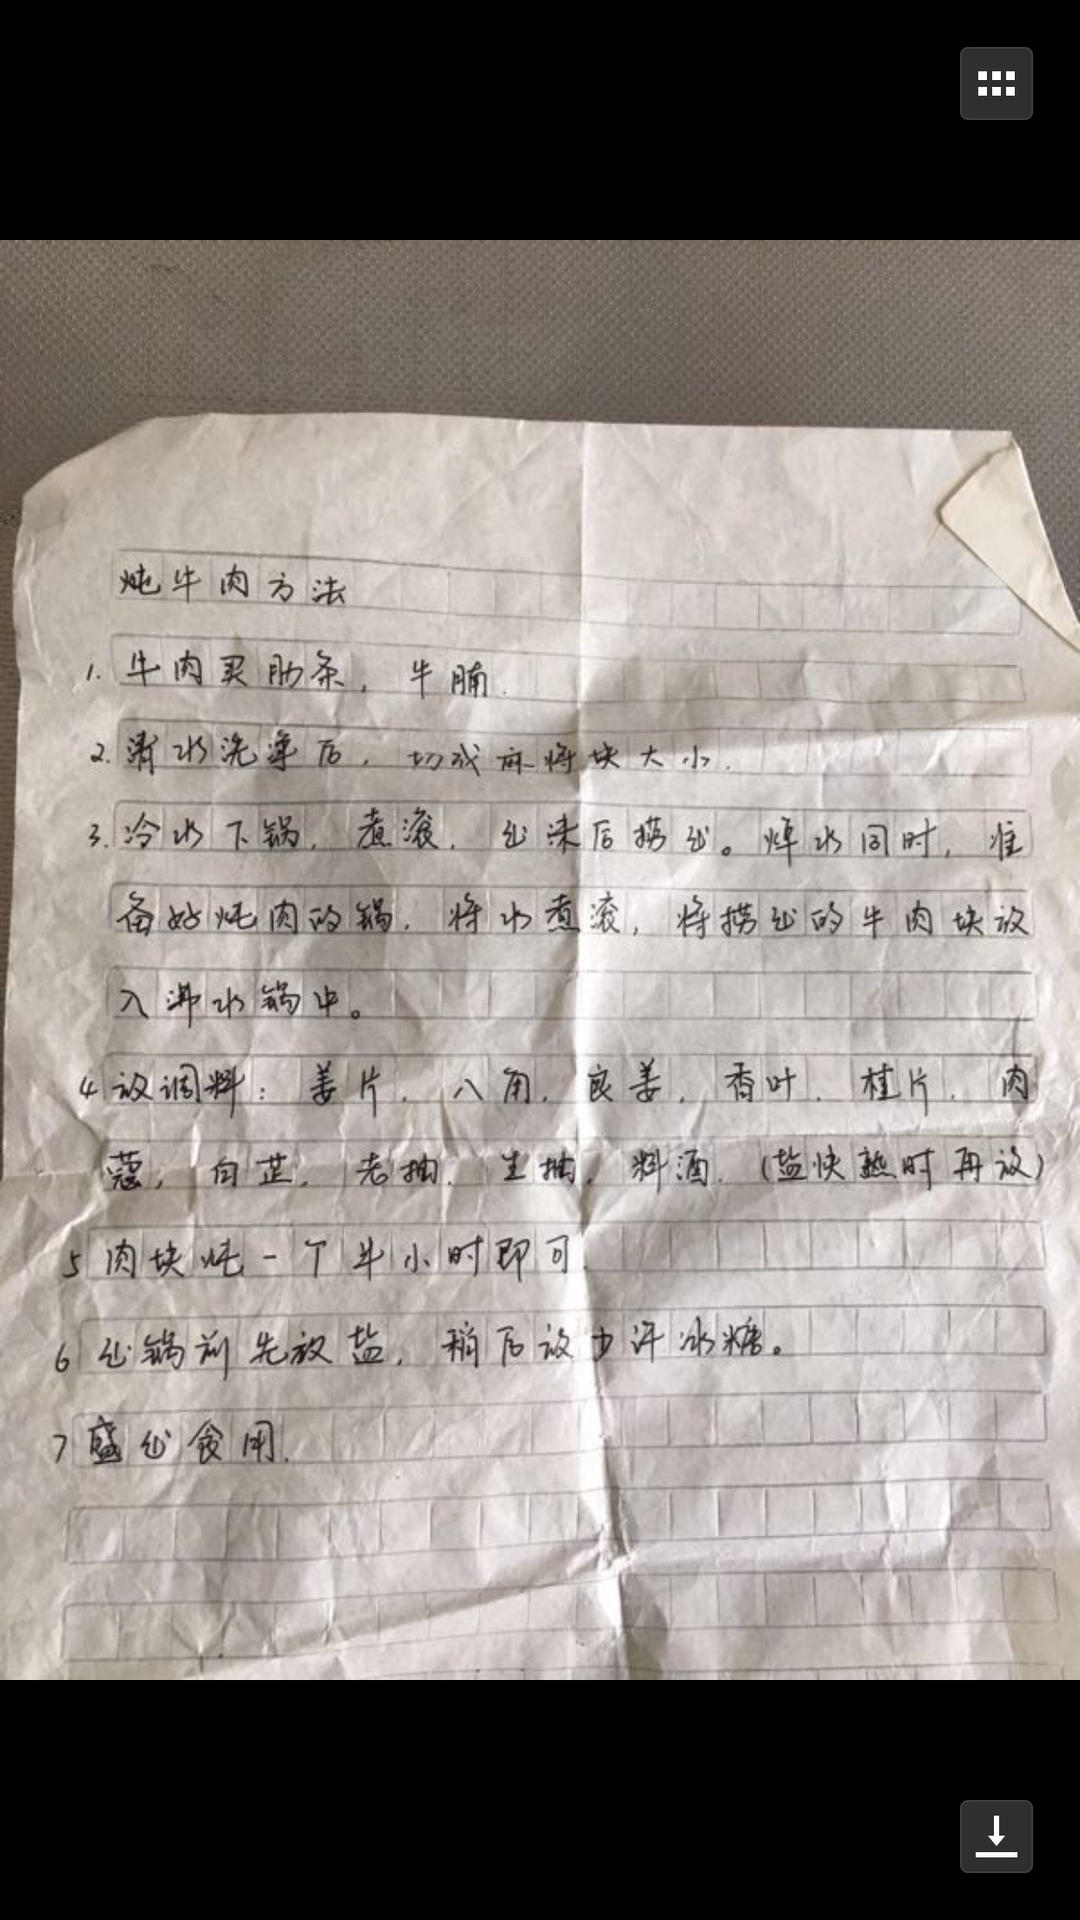 炖牛肉方法
1. 牛肉买肋条，牛腩.
2. 清水洗净后，切成麻将块大小.
3. 冷水下锅，煮滚，出沫后捞出。焯水同时，准
备好炖肉的锅，将水煮滚，将捞出的牛肉块放
入沸水锅中。
4 放调料：姜片，八角，良姜，香叶，桂片，肉
蔻，白芷，老抽，生抽，料酒.（盐快熟时再放）
5 肉块炖一个半小时即可.
6 出锅前先放盐，稍后放少许冰糖。
7 盛出食用.